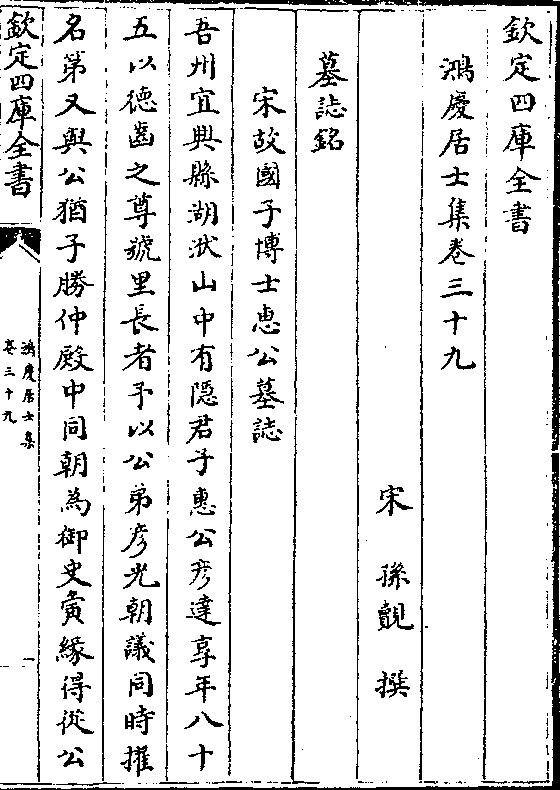 欽定四庫全書
鴻慶居士集卷三十九
宋　孫覿　撰
墓誌銘
宋故國子博士惠公墓誌
吾州宜興縣湖㳇山中有隠君子惠公彦達享年八十
五以德齒之尊號里長者予以公弟彦光朝議同時擢
名第又與公猶子勝仲殿中同朝為御史夤縁得從公
欽定四庫全書
鴻慶居士集
卷三十九
一